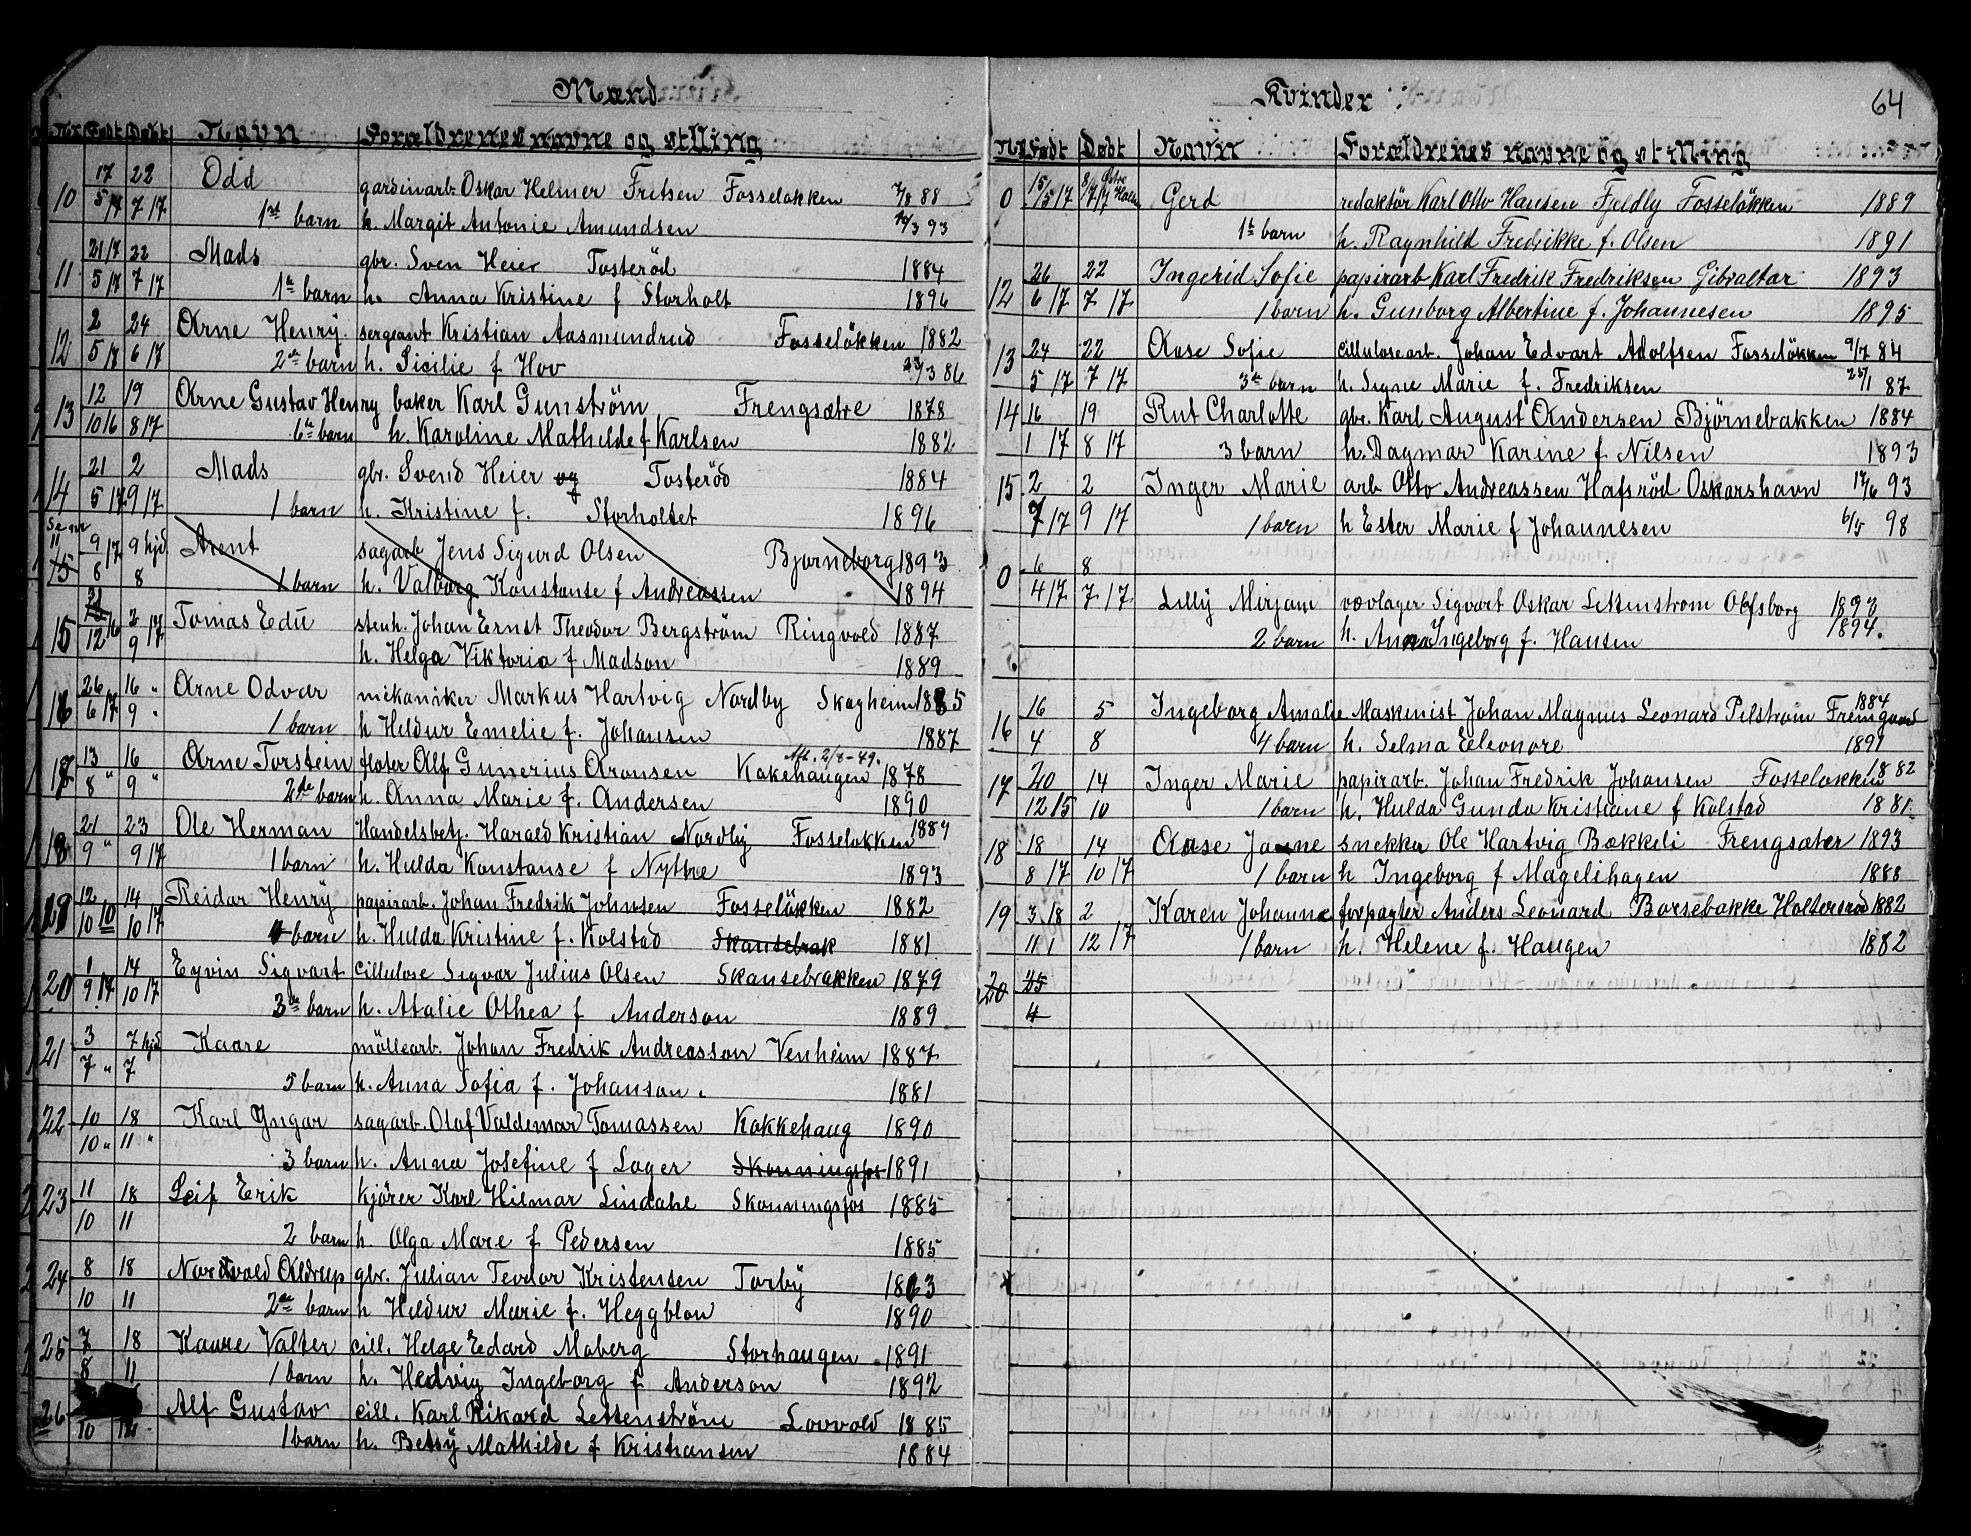 Mænd
Nr Født Døbt Navn Forældrenes navne og stilling
10 17 22 Odd gardinarb. Oskar Helmer Fretsen Fosseløkken 7/8 88
5 17 7 17 1st barn h. Margit Antonie Amundsen 14/3 93
11 21 17 22 Mads gbr. Sven Heier Tosterød 1884
5 17 7 17 1st barn h. Anna Kristine f Storholt 1896
12 2 24 Arne Henry. sergeant Kristian Aasmundrud Fosseløkken 1882
5 17 6 17 2det barn h. Sicilie f Hov 23/3 86
13 12 19 Arne Gustav Henry baker Karl Gunström Frengsætre 1878
10 16 8 17 6te barn h. Karoline Mathilde f Karlsen 1882
14 21 2 Mads gbr. Svend Heier og Tosterød 1884
5 17 9 17 1 barn h. Kristine f. Storholtet 1896
Se nr 11
15 9 17 9 hjd Arent sagarb Jens Sigurd Olsen Bjørneborg 1893
8 8 1 barn h. Valborg Konstanse f Andreassen 1894
15 16 2 17 Tomas Edü stenh. Johan Ernst Theodor Bergström Ringvold 1887
12 9 h. Helga Viktoria f Madson 1889
16 26 16 " Arne Odvar mekaniker Markus Hartvig Nordby Skogheim 1885
6 17 9 " 1 barn h Heldur Emelie f. Johansen 1887
Aft. 2/8-49.
17 13 16 Arne Torstein fløter Alf Gunerius Aronsen Kakehaugen 1878
8 " 9 " 2de barn h. Anna Marie f. Andersen 1890
18 21 23 Ole Herman Handelsbetj. Harald Kristian Nordby Fosseløkken 1889
9 " 9 17 1 barn h. Hulda Konstanse f Nythe 1893
19 12 14 Reidar Henrÿ papirarb. Johan Fredrik Johnsen Fosseløkken 1882
10 10 10 17 barn h. Hulda Kristine f. Kolstad Skansebak 1881
20 1 14 Eyvin Sigvart Cillulose Sigvar Julius Olsen Skansebakken 1879
9 17 10 17 3die barn h. Atalie Othea f Anderson 1889
21 3 7 hjd Kaare möllearb. Johan Fredrik Andreasson Venheim 1887
7 " 7 5 barn h. Anna Sofia f. Johanson. 1881
22 10 18 Karl Yngar sagarb. Olaf Valdemar Tomassen Kokkehaug 1890
10 " 11 " 3 barn h. Anna Josefine f Lager Skonningsfos 1891
23 11 18 Leif Erik kjører Karl Hilmar Lindahl Skonningsfos 1885
10 11 2 barn h. Olga Mare f Pedersen 1885
24 8 18 Nordvald Aldrup gbr. Julian Teodor Kristensen Torbÿ 1863
10 11 2de barn h Heldur Marie f. Heggblon 1890
25 7 18 Kaare Valter cill. Helge Edard Moberg Storhaugen 1891
8 11 1 barn h. Hedvig Ingeborg f Anderson 1892
26 Alf Gustav cill. Karl Rikard Lettenström Lovvold 1885
10 1 barn h. Betsÿ Mathilde f Kristiansen 1884
Kvinder
64
Nr Født Døbt Navn Forældrenes navne og stilling
0 15/5 17 8/7 17 Østre Halen Gerd redaktör Karl Otto Hansen Fjeldly Fosseløkken 1889
1st barn h. Ragnhild Fredrikke f. Olsen 1891
12 26 22 Ingerid Sofie papirarb Karl Fredrik Fredriksen Gibraltar 1893
6 17 7 17 1 barn h. Gunborg Albertine f. Johannesen 1895
13 24 22 Aase Sofie cilluloseart. Johan Edvart Adolfsen Fosseløkken 9/7 84
5 17 7 17 3de barn h. Signe Marie f. Fredriksen 25/1 87
14 16 19 Rut Charlotte gbr. Karl August Andersen Björnebakken 1884
1 17 8 17 3 barn h. Dagmar Karine f Nilsen 1893
15 2 2 Inger Marie arb Otto Andreassen Hafsröd Oskarshavn 17/6 93
7 17 9 17 1 barn h Ester Marie f Johannesen 6/5 98
0 6 8
4 17 7 17 Lillÿ Mirjam vævlager Sigvart Oskar Lettenstrom Olafsborg 1893
2 barn h. Anna Ingeborg f. Hansen 1894.
16 16 5 Ingeborg Amalie Maskinist Johan Magnus Leonard Pilstrom Fremgaard 1884
4 8 4 barn h. Selma Eeleonore 1891
17 20 14 Inger Marie papirarb. Johan Fredrik Johansen Fosseløkken 1882
12 15 10 1 barn h. Hulda Gunda Kristiane f Kolstad 1881
18 18 14 Aase Janne snekker Ole Hartvig Bækkeli Frengsæter 1893
8 17 10 17 1 barn h Ingeborg f Magelihagen 1888
19 3 18 2 Karen Johanne forpagter Anders Leonard Borsebakke Holtersrød 1882
11 1 12 17 1 barn h. Helene f. Haugen 1882
20 25
4